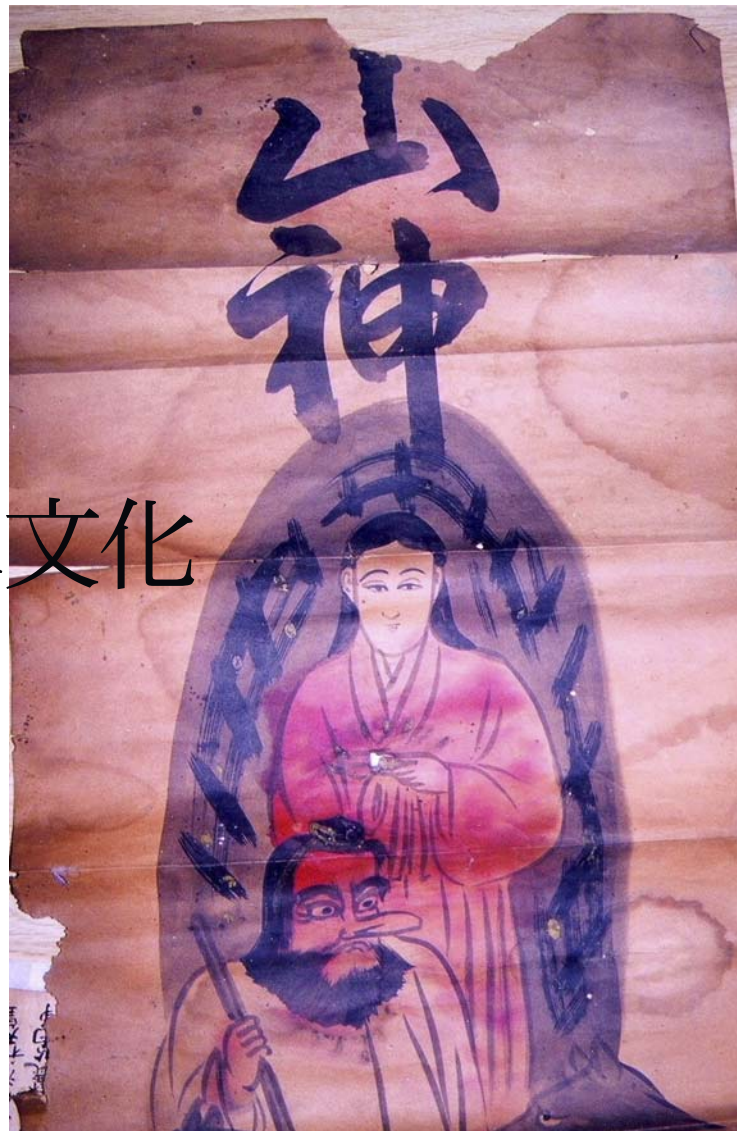 山
神
文化